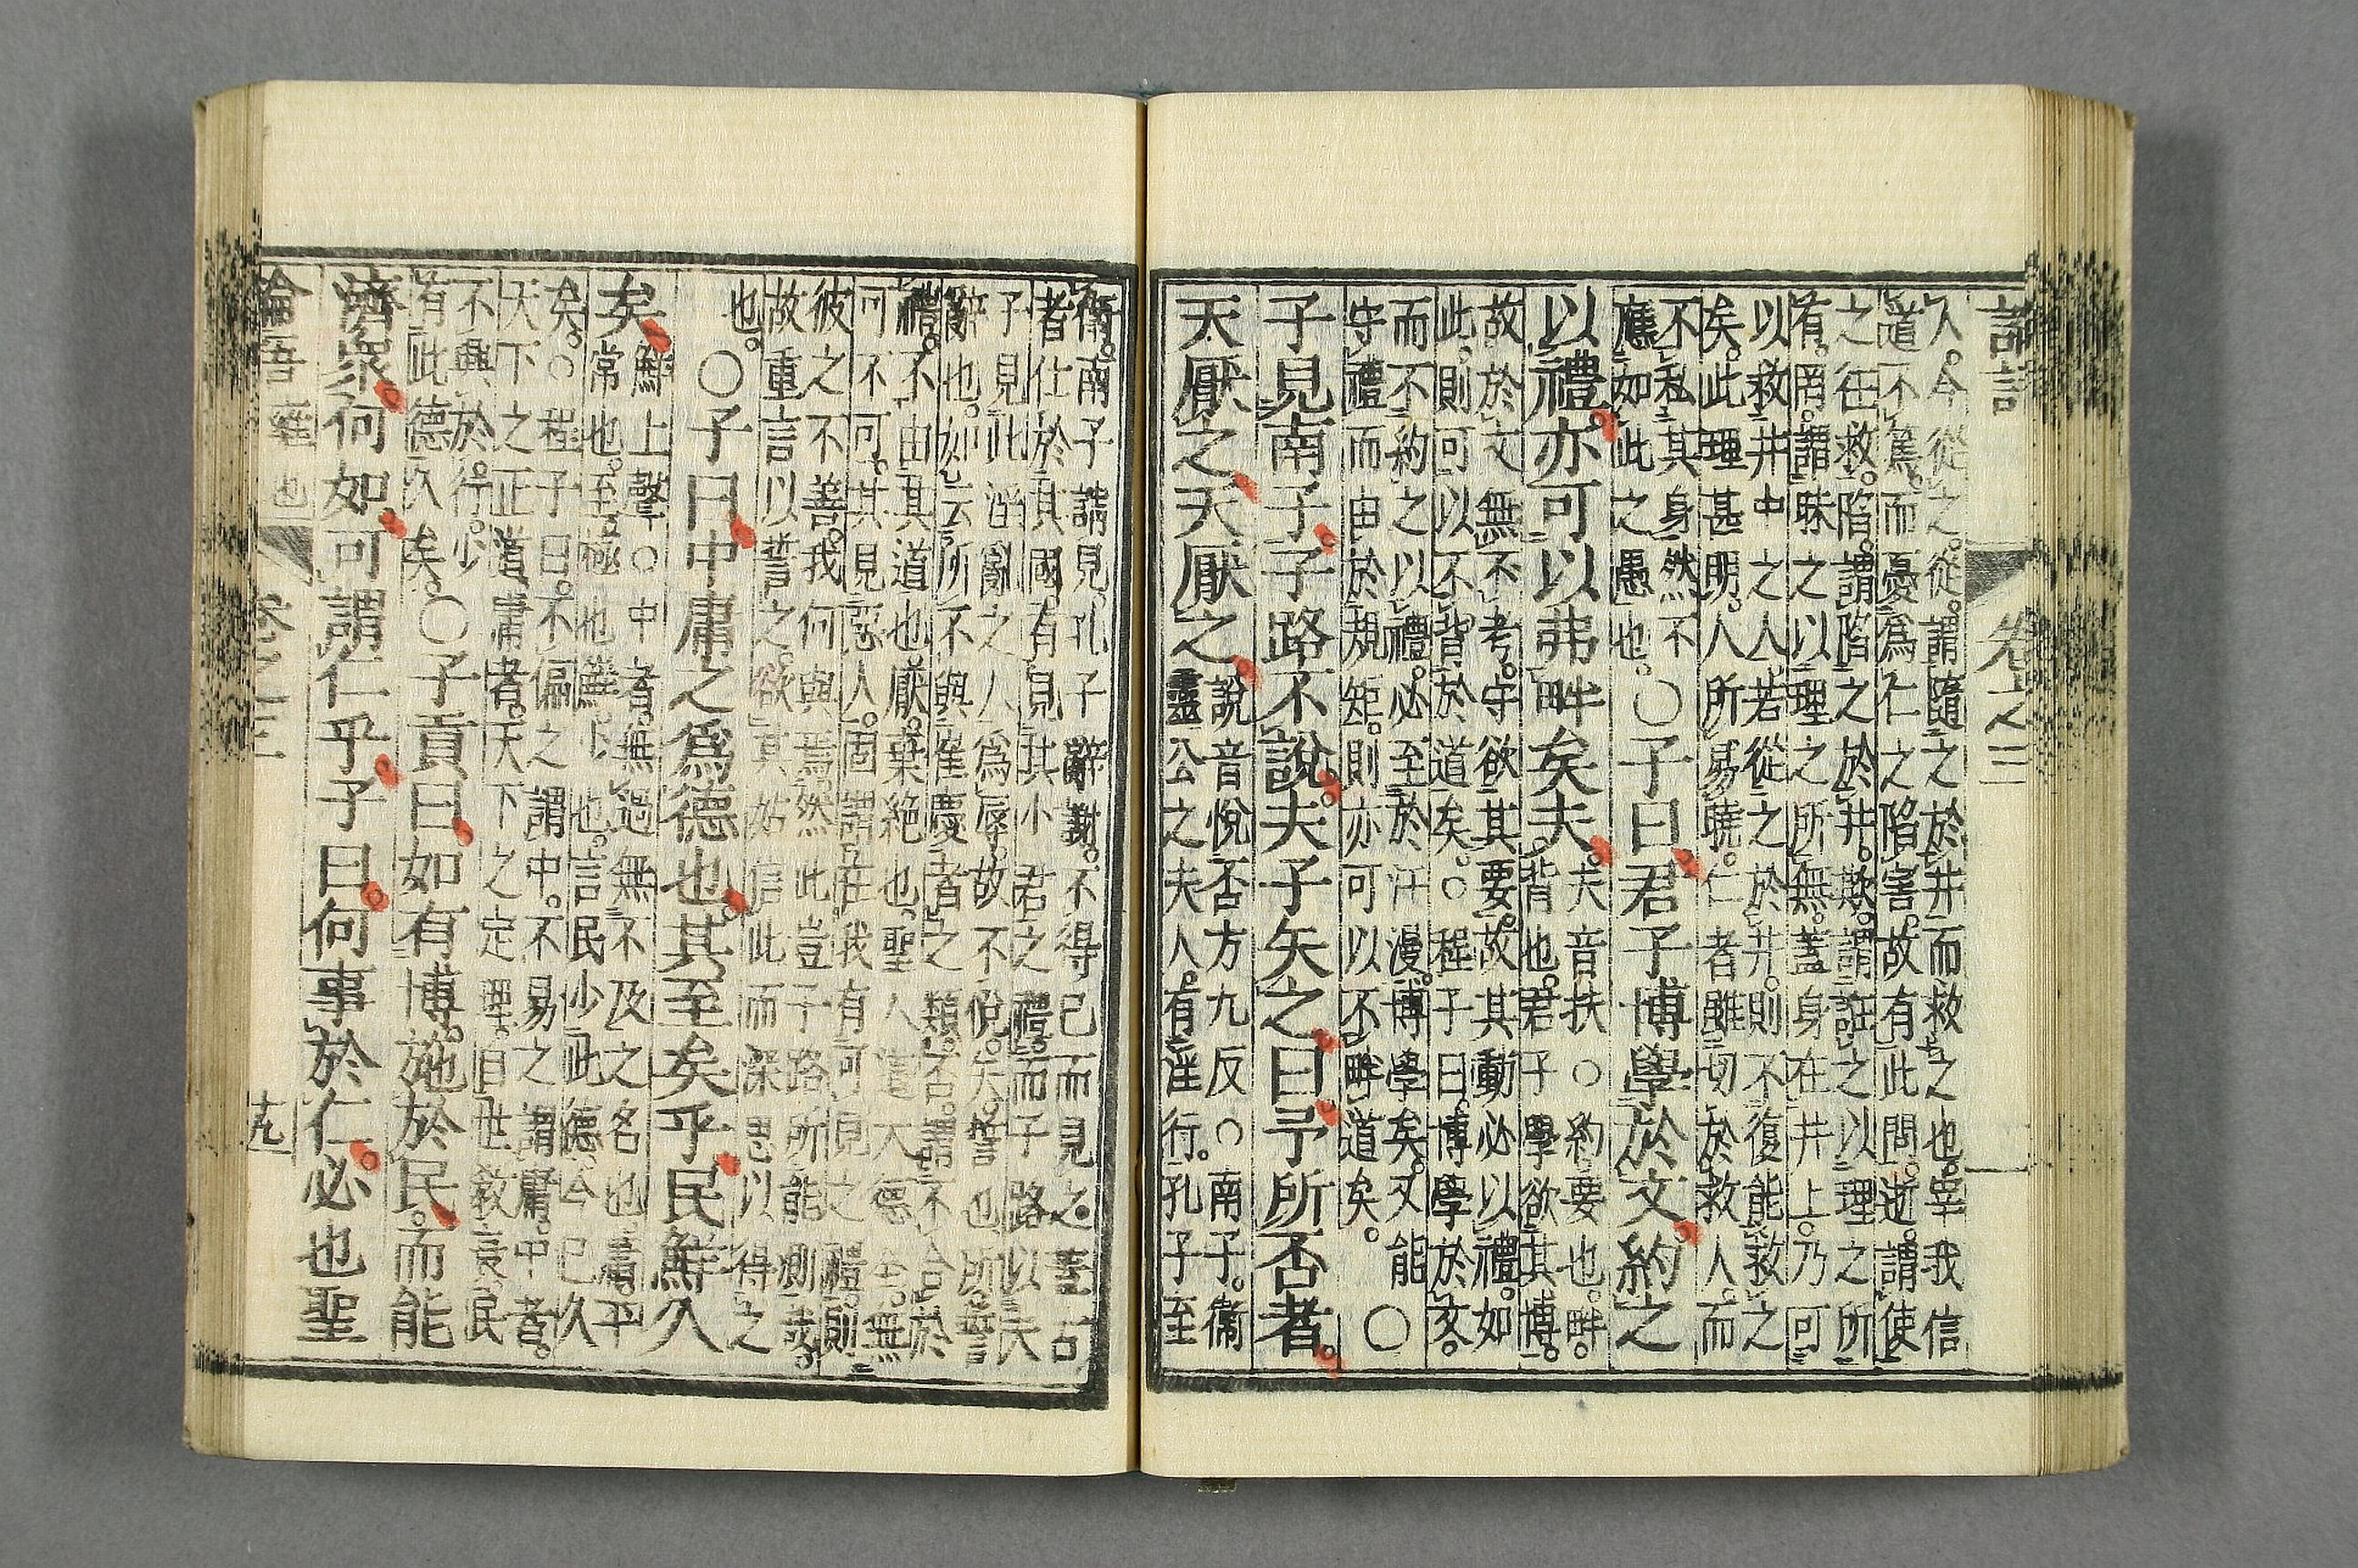 卷之三
人。今從之。從。謂隨之於井而救之也。宰我信
道不篤。而憂爲仁之陷害。故有此問。逝。謂使
之往救。陷。謂陷之於井。欺。謂誑之以理之所
有。罔。謂昧之以理之所無。蓋身在井上。乃可
以救井中之人。若從之於井。則不復能救之
矣。此理甚明。人所易曉。仁者雖切於救人。而
不私其身。然不
應如此之愚也。
○子曰君子博學於文約之
以禮。亦可以弗畔矣夫。
夫音扶○約。要也。畔。
背也。君子學欲其博。
故於文無不考。守欲其要。故其動必以禮。如
此。則可以不背於道矣。○程子曰。博學於文。
而不約之以禮。必至於汗漫。博學矣。又能
守禮而由於規矩。則亦可以不畔道矣。
○
子見南子。子路不說。夫子矢之曰予所否者。
天厭之天厭之。
說音悅否方九反○南子。衛
靈公之夫人。有淫行。孔子至
衛。南子請見。孔子辭謝。不得已而見之。蓋古
者仕於其國。有見其小君之禮。而子路以夫
子見此淫亂之人爲辱。故不悅。矢。誓也。所。誓
辭也。如云所不與崔慶者之類。否。謂不合於
禮。不由其道也。厭。棄絕也。聖人道大德全。無
可不可。其見惡人。固謂在我有可見之禮。則
彼之不善。我何與焉。然此豈子路所能測哉。
故重言以誓之。欲其姑信此而深思以得之
也。
○子曰中庸之爲德也。其至矣乎民鮮久
矣
鮮上聲○中者。無過無不及之名也。庸。平
常也。至。極也。鮮。少也。言民少此德。今已久
矣。○程子曰。不偏之謂中。不易之謂庸。中者。
天下之正道。庸者。天下之定理。自世敎衰。民
不興於行。少
有此德久矣。
○子貢曰如有博施於民。而能
濟衆。何如可謂仁乎子曰。何事於仁。必也聖
雍也 卷之三